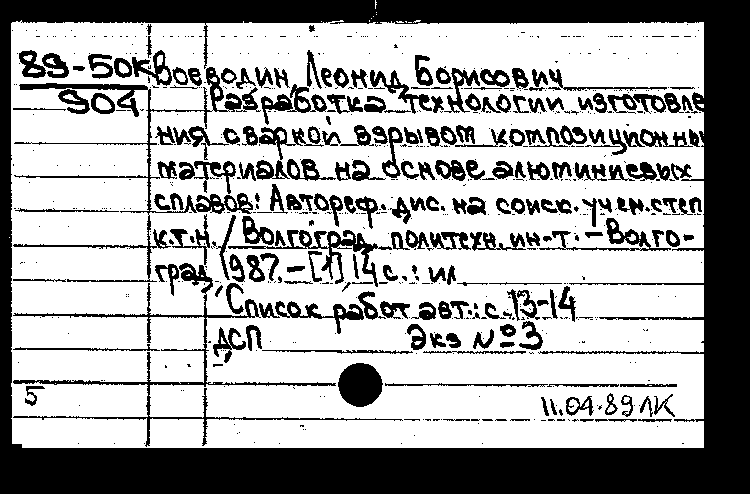 89-50к Воеводин, Леонид Борисович
904 Разработка технологии изготовле
ния сваркой взрывом композиционны
материалов на основе алюминиевых
сплавов: Автореф. дис. на соиск. учен. степ
к.т.н. / Волгоград. политехн. ин-т. - Волго-
град, 1987. - [1] 14 с. : ил.
Список работ авт.: с. 13-14
ДСП Экз № 3
5
11.04.89 ЛК